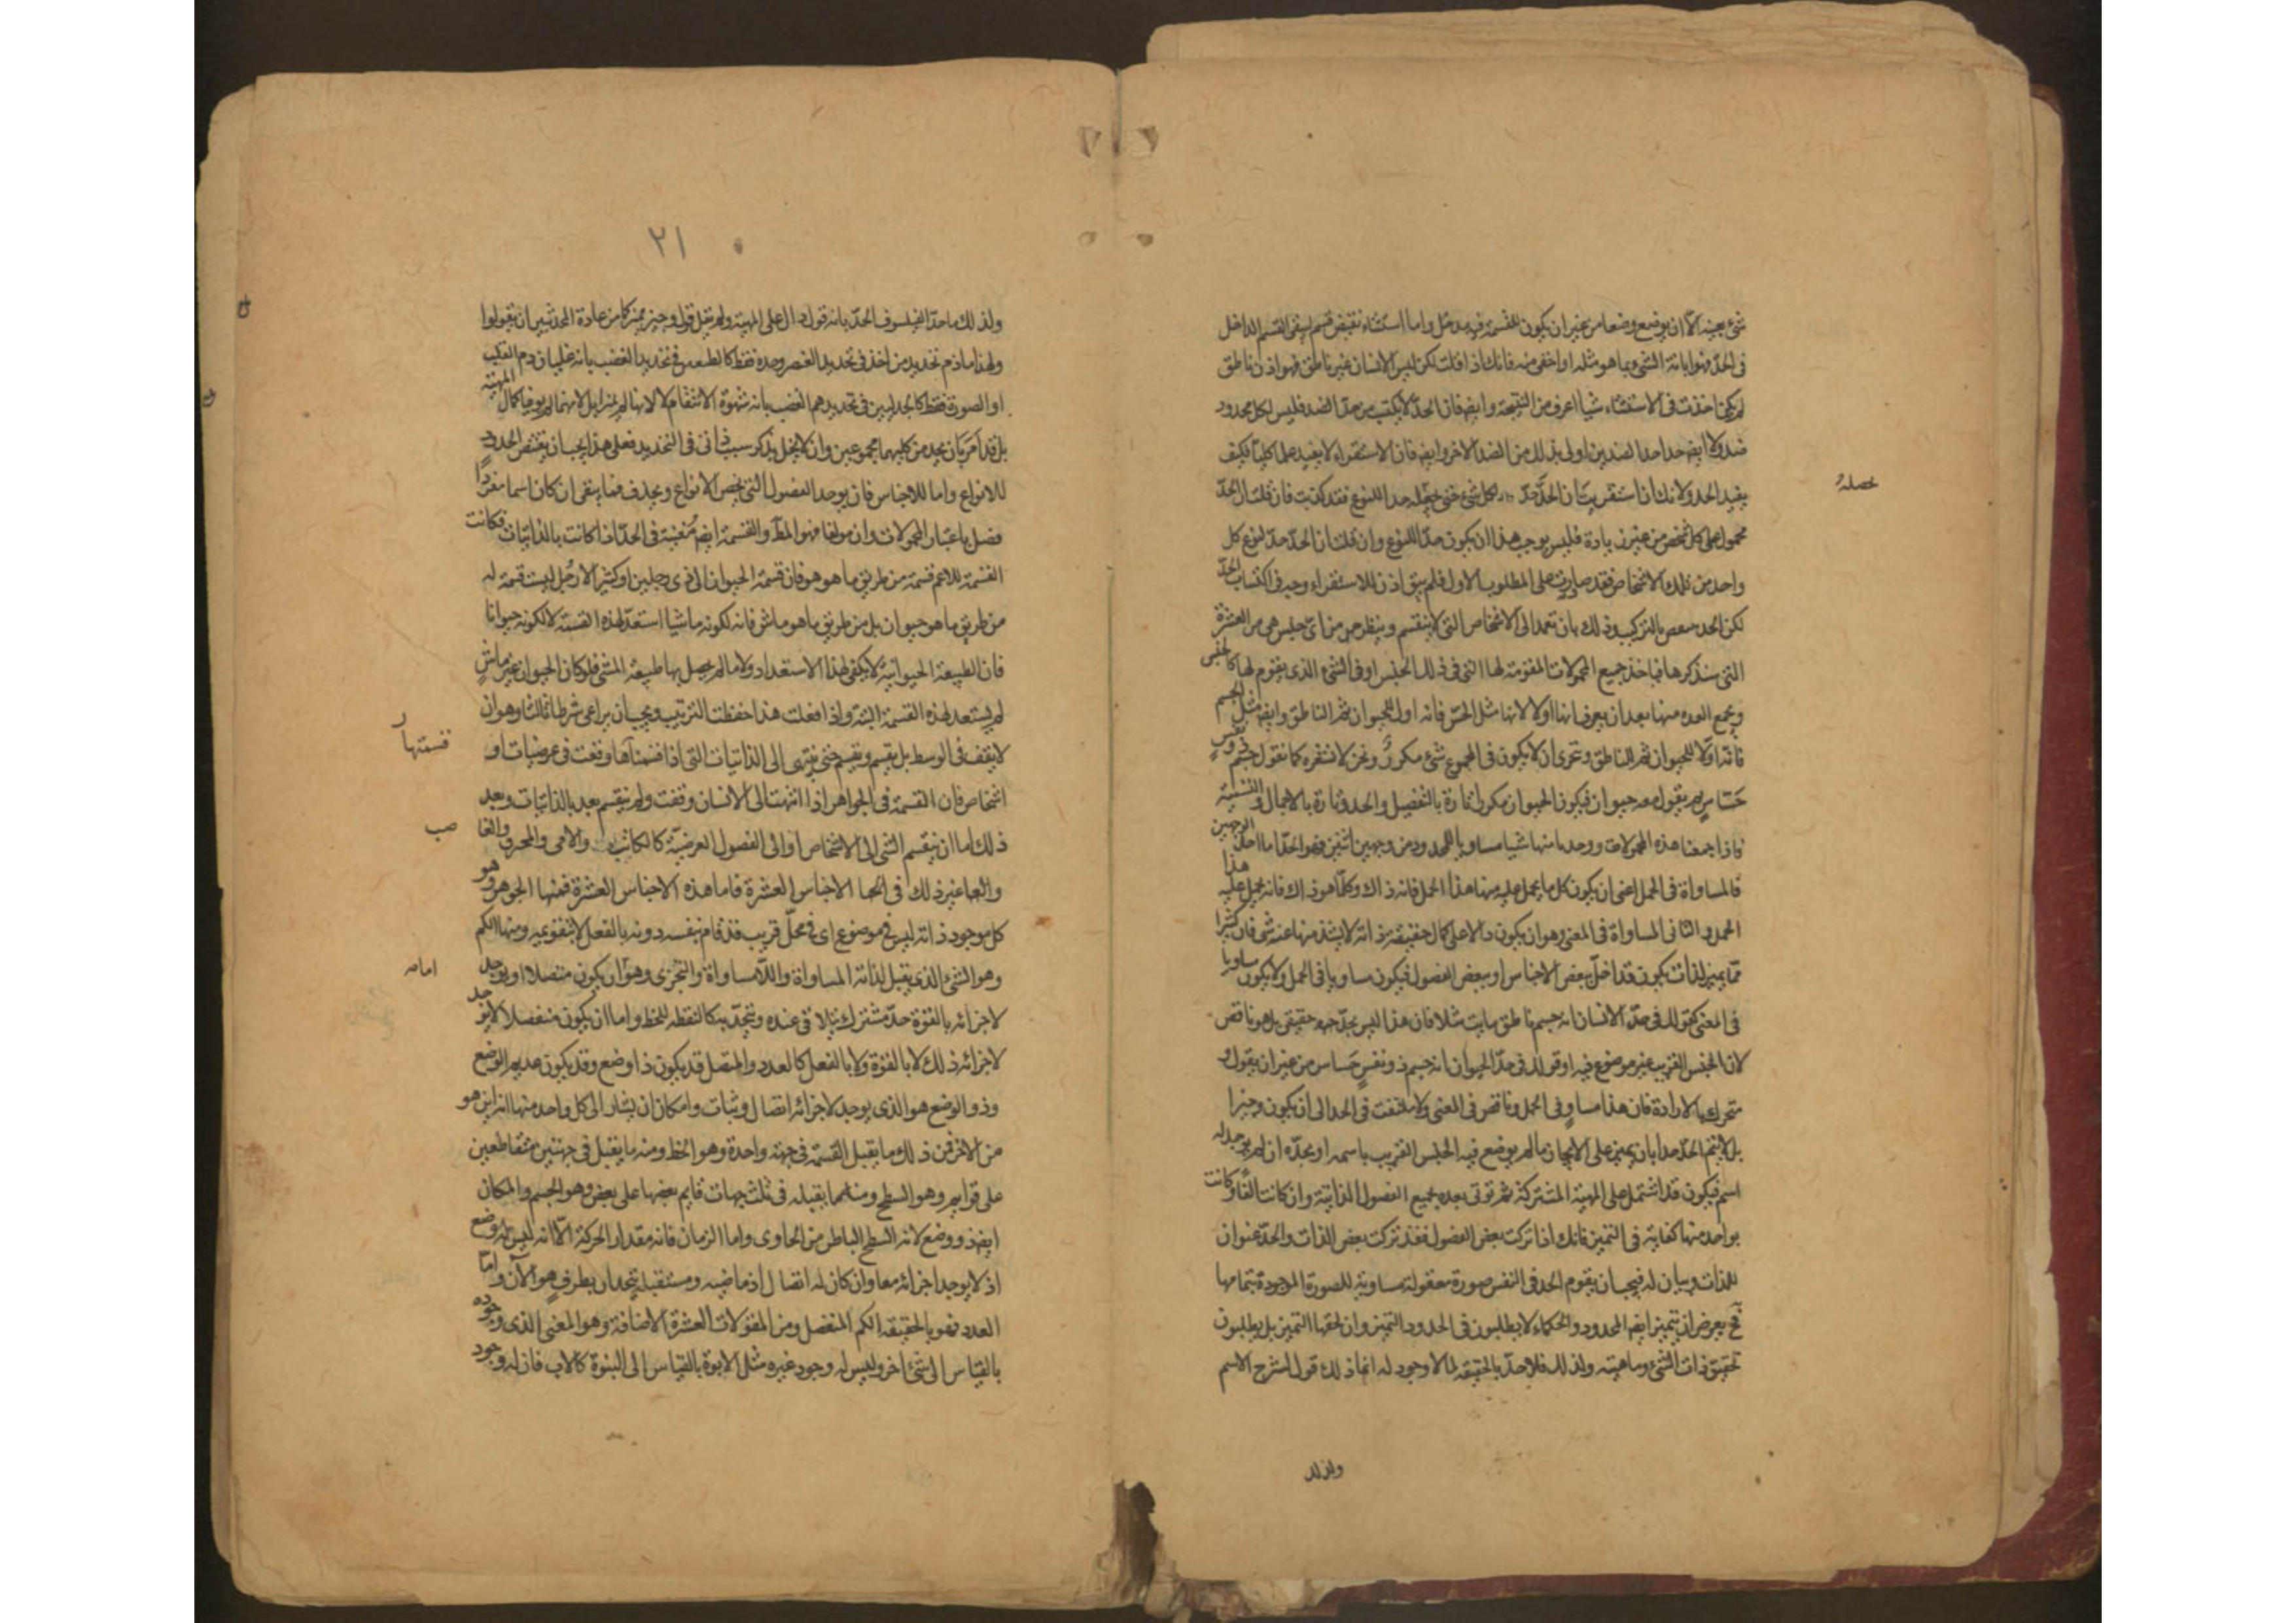 شئ بعينه الا ان يوضع وضعا من غير ان يكون للقسمة فيه مدخل واما استثناء نقيض قسم ليبقى القسم الداخل
فى الحد فهو ابانة الشئ بما هو مثله او اخفى منه فانك اذا قلت لكن ليس الانسان غير ناطق فهو اذن ناطق
لم يكن اخذت فى الاستثناء شيا اعرف من النتيجة وايضا فان الحد لا يكتسب من حد الضد فليس لكل محدود
ضد ولا ايضا حد احد الضدين اولى بذلك من الضد الاخر وايضا فان الاستقراء لا يفيد علما كليا فكيف
يفيد الحد ولانك ان استقريت ان الحد حد لكل شخص حتى تجعله حد النوع فقد كذبت فان قلت ان الحد
محمول على كل شخص من غير زيادة فليس يوجب هذا ان يكون حدا للنوع وان قلت ان الحد حد لنوع كل
واحد من تلك الاشخاص فقد صادرت على المطلوب الاول فلم يبق اذن للاستقراء وجه فى اكتساب الحد
لكن الحد يقتنص بالتركيب وذلك بان تعمد الى الاشخاص التى لا تنقسم وينظر من اى جنس هى من العشرة
التى سنذكرها فياخذ جميع المحمولات المقومة لها التى فى ذلك الجنس او فى الشئ الذى يقوم لها كالجنس
ويجمع العدة منها بعد ان يعرف ايها اولا لايها مثل الحس فانه اولا للحيوان ثم الناطق وايضا مثل الجسم
فانه اولا للحيوان ثم للناطق وتحرى ان لا يكون فى المجموع شئ مكرر ونحن لا نشعر به كما نقول جسم ذو نفس
حساس ثم يقول معه حيوان فيكون الحيوان مكررا تارة بالتفصيل والحد وتارة بالاجمال والتسمية
فاذا جمعنا هذه المحمولات ووجدنا منها شيا مساويا للمحدود من وجهين اثنين فهو الحد اما احد الوجهين
فالمساواة فى الحمل اعنى ان يكون كل ما يحمل عليه منها هذا الحمل فانه ذاك وكلما هو ذاك فانه يحمل عليه هذا
الحمل والثانى المساواة فى المعنى وهو ان يكون دالا على كمال حقيقة ذاته لا يشذ منها عنه شئ فان كثيرا
مما يميز الذات يكون قد اخل ببعض الاجناس او ببعض الفصول فيكون مساويا فى الحمل ولا يكون مساويا
فى المعنى كقولك فى حد الانسان انه جسم ناطق مايت مثلا فان هذا ليس بحد حقيقى بل هو ناقص
لان الجنس القريب غير موضوع فيه او قولك فى حد الحيوان انه جسم ذو نفس حساس من غير ان يقول و
متحرك بالارادة فان هذا مساو فى الحمل وناقص فى المعنى ولا يلتفت فى الحد الى ان يكون وجيزا
بل لا يتم الحد حدا بان يميز على الايجاز ما لم يوضع فيه الجنس القريب باسمه او بحده ان لم يوجد له
اسم فيكون قد اشتمل على المهية المشتركة ثم تؤتى بعده بجميع الفصول الذاتية وان كانت الفا وكانت
بواحد منها كفاية فى التميز فانك اذا تركت بعض الفصول فقد تركت بعض الذات والحد عنوان
للذات وبيان له فيجب ان يقوم الحد فى النفس صورة معقولة مساوية للصورة الموجودة بتمامها
فح يعرض ان يتميز ايضا المحدود والحكماء لا يطلبون فى الحدود التميز وان لحقها التميز بل يطلبون
تحقيق ذات الشئ وماهيته ولذلك فلا حد بالحقيقة لما لا وجود له انما ذلك قول لشرح الاسم
ولذلك
٢١
ولذلك ما حد الفيلسوف الحد بانه قول دال على المهية ولم يقل قول وجيز مميز كما من عادة المحدثين ان يقولوا
ولهذا ما ذم تحديد من اخذ فى تحديد العنصر وحده فقط كالطبيعيين فى تحديد الغضب بانه غليان دم القلب
او الصورة فقط كالجدليين فى تحديدهم الغضب بانه شهوة الانتقام لا لانها لم يميزا بل لانهما لم يوفيا كمال المهية
بل قد امر بان يحد من كليهما مجموعين وان لا يخل بذكر سبب ذاتى فى التحديد فعلى هذا يجب ان يقتنص الحدود
للانواع واما للاجناس فان يوجد الفصول التى يخص الانواع ويحذف فما يبقى ان كان اسما مفردا
فصل باعتبار المحمولات وان مولفا فهو المط والقسمة ايضا مغنية فى الحد اذا كانت بالذاتيات فكانت
القسمة للاعم قسمة من طريق ما هو هو فان قسمة الحيوان الى ذى رجلين او كثير الارجل ليست قسمة له
من طريق ما هو حيوان بل من طريق ما هو ماش فانه لكونه ماشيا استعد لهذه القسمة لا لكونه حيوانا
فان الطبيعة الحيوانية لا يكفى لهذا الاستعداد ولا ما لم يحصل بها طبيعة المشى فلو كان الحيوان غير ماش
لم يستعد لهذه القسمة البتة واذا فعلت هذا حفظت الترتيب ويجب ان يراعى شرطا ثالثا وهو ان
لا يقف فى الوسط بل يقسم ويقسم حتى ينتهى الى الذاتيات التى اذا قسمناها وقعت فى عرضيات او
قسمتها
اشخاص فان القسمة فى الجواهر اذا انتهت الى الانسان وقفت ولم ينقسم بعد بالذاتيات وبعد
ذلك اما ان ينقسم الشئ الى الاشخاص او الى الفصول العرضية كالكاتب والامى والمحروف
غير ذلك فى الاجناس العشرة فاما هذه الاجناس العشرة فمنها الجوهر وهو
كل موجود ذاته ليس فى موضوع اى فى محل قريب قد قام بنفسه دونه بالفعل لا بتقويمه ومنها الكم
وهو الشئ الذى يقبل لذاته المساواة واللامساواة والتجزى وهو ان يكون متصلا او يوجد
اما
لاجزائه بالقوة حد مشترك يتلاقى عنده ويتحد به كالنقطة للخط واما ان يكون منفصلا لا يوجد
لاجزائه ذلك لا بالقوة ولا بالفعل كالعدد والمتصل قد يكون ذا وضع وقد يكون عديم الوضع
وذو الوضع هو الذى يوجد لاجزائه اتصال وثبات وامكان ان يشار الى كل واحد منها انه اين هو
من الاخر فمن ذلك ما يقبل القسمة فى جهة واحدة وهو الخط ومنه ما يقبل فى جهتين متقاطعتين
على قوايم وهو السطح ومنه ما يقبله فى ثلث جهات قايم بعضها على بعض وهو الجسم والمكان
ايضا ذو وضع لانه السطح الباطن من الحاوى واما الزمان فانه مقدار الحركة الا انه ليس له وضع
اذ لا يوجد اجزائه معا وان كان له اتصال اذ ماضيه ومستقبله يتحدان بطرف هو الان واما
العدد فهو بالحقيقة الكم المنفصل ومن المقولات العشرة الاضافة وهو المعنى الذى وجوده
بالقياس الى شئ اخر وليس له وجود غيره مثل الابوة بالقياس الى البنوة كالاب فان له وجود